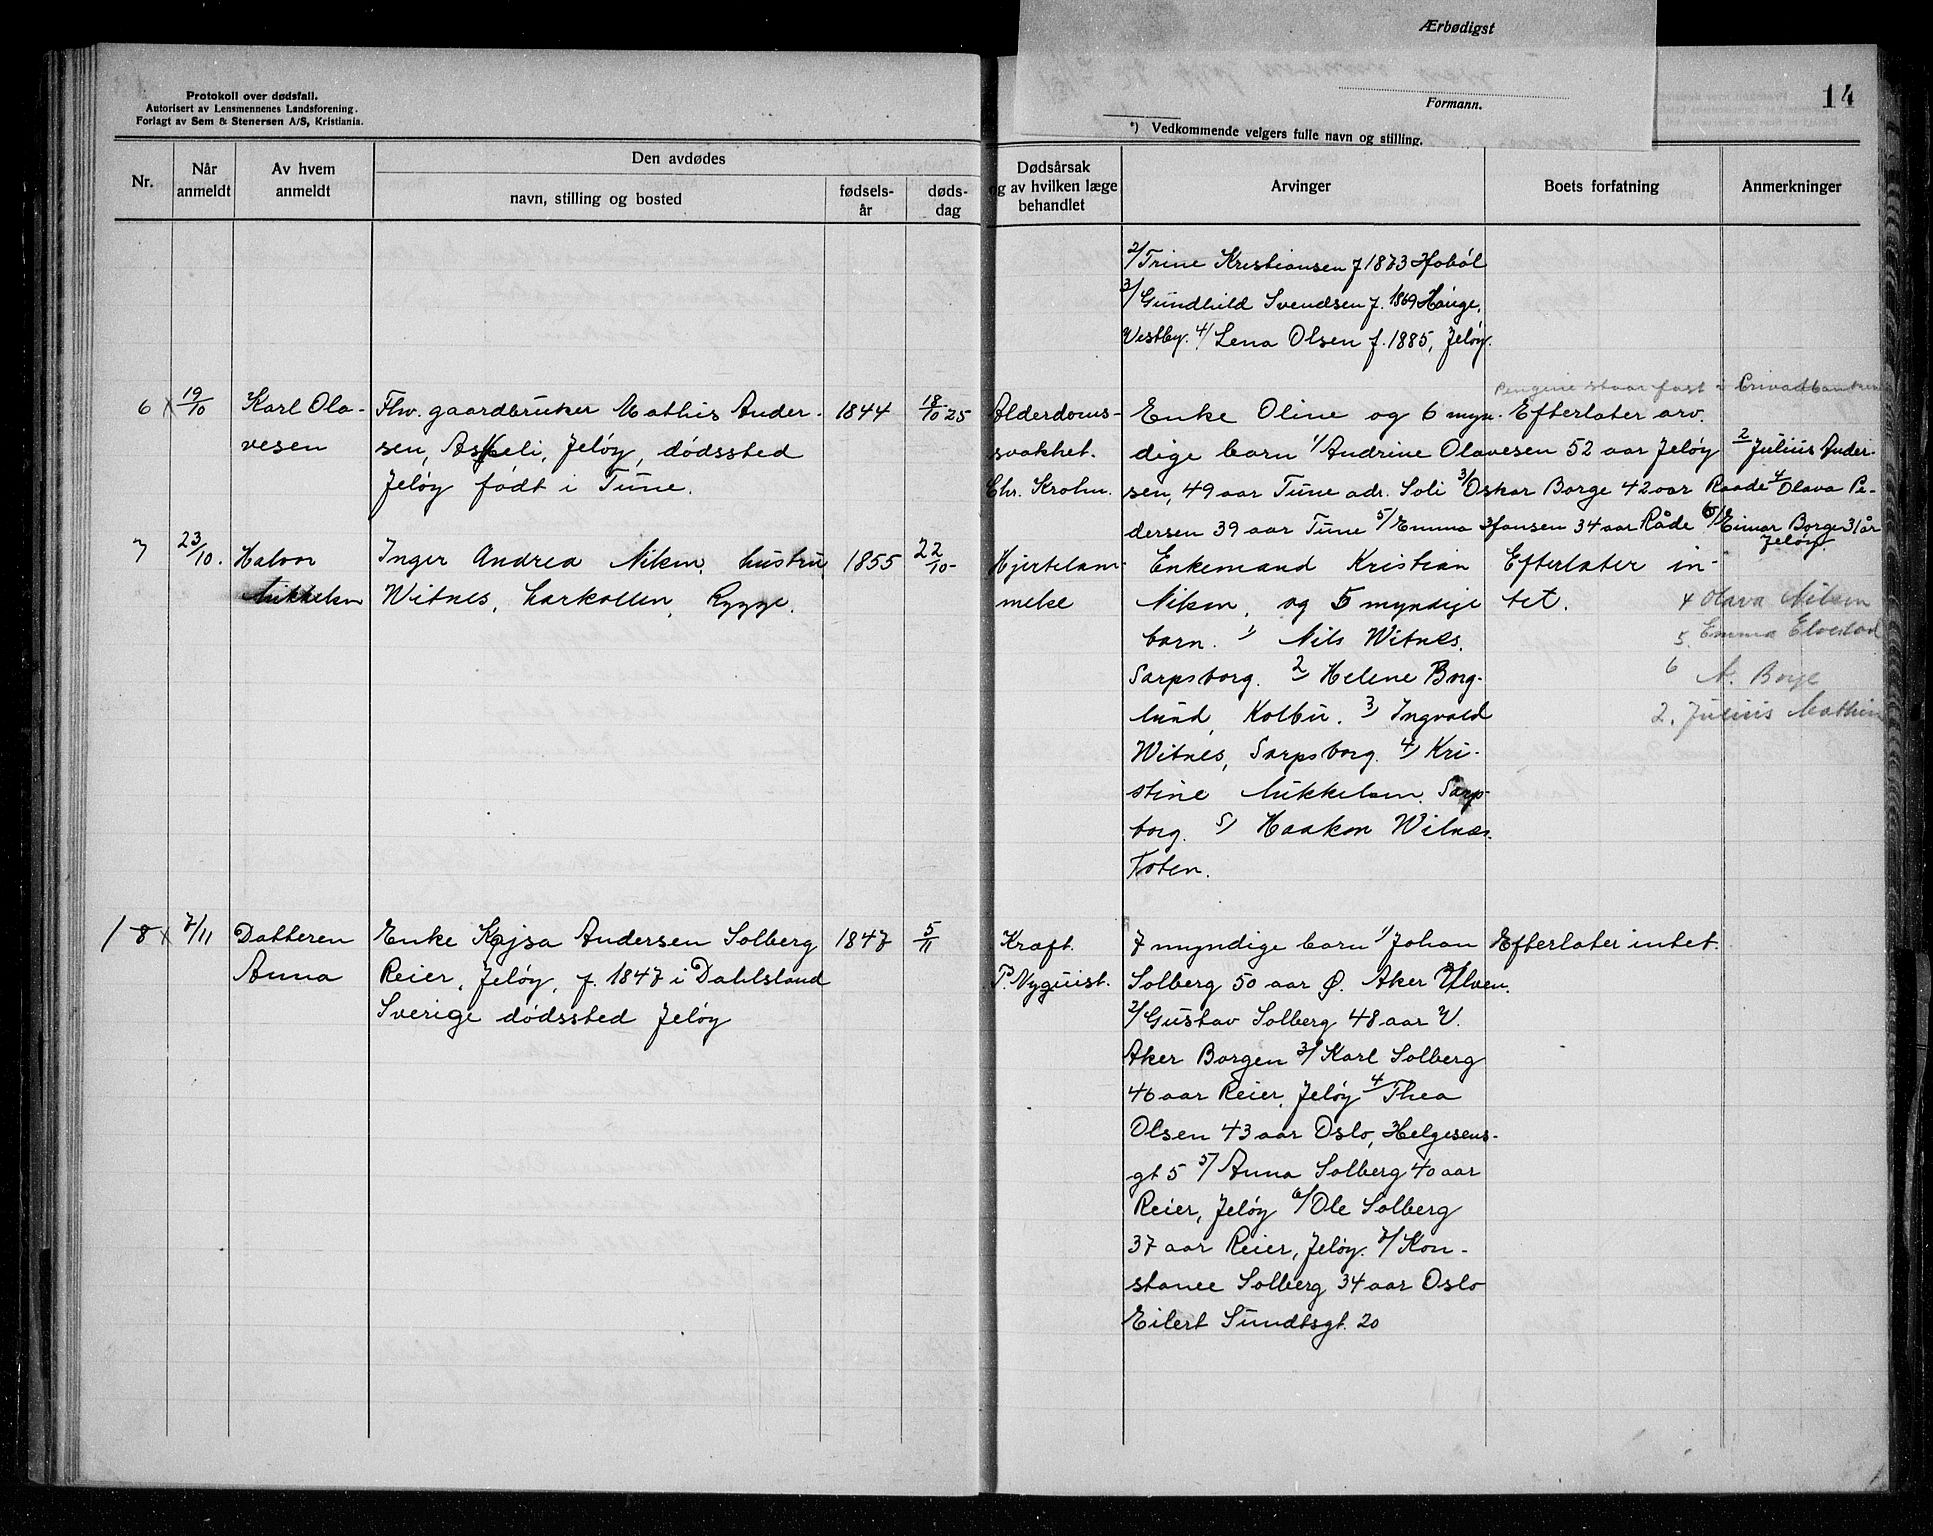 Protokoll over dødsfall.
Autorisert av Lensmennenes Landsforening.
Forlagt av Sem & Stenersen A/S, Kristiania.
Nr.
Når anmeldt
Av hvem anmeldt
Den avdødes
navn, stilling og bosted
fødsels-
år
døds-
dag
6 x 19/10
Karl Ola-
vesen
Fhv. gaardbruker Mathis Ander-
sen, Askeli, Jeløy, dødssted
Jeløy født i Tune.
1844
18/10 25
7 23/10.
Halvor
Mikkelsen
Inger Andrea Nilsen, hustru
Witnes, Larkollen, Rygge.
1855
22/10-
8 x 7/11
Datteren
Anna
Enke Kajsa Andersen Solberg
Reier, Jeløy, f. 1847 i Dahlsland
Sverige dødssted Jeløy
1847
5/11
Ærbødigst
Formann.
*) Vedkommende velgers fulle navn og stilling.
14
Dødsårsak
og av hvilken læge
behandlet
Arvinger
Boets forfatning
Anmerkninger
2/ Trine Kristiansen f 1873 Hobøl
3/ Gundhild Svendsen f. 1869 Hauge,
Vestby. 4/ Lena Olsen f. 1885, Jeløy.
Pengene staar fast i Privatbanken
Alderdoms-
svakhet.
Chr. Krohn.
Enke Oline og 6 myn- Efterlater arv.
dige barn 1/ Andrine Olavesen 52 aar Jeløy 2/ Julius Ander-
sen, 49 aar Tune adr. Soli 3/ Oskar Borge 42 aar Raade 4/ Olava Pe-
dersen 39 aar Tune 5/ Emma Hansen 34 aar Råde 6/ Einar Borge 31 år
Jeløy.
Hjertelam-
melse
Enkemand Kristian
Nilsen, og 5 myndige
barn. 1) Nils Witnes,
Sarpsborg. 2) Helene Borg-
lund, Kolbu. 3) Ingvald
Witnes, Sarpsborg. 4) Kri-
stine Mikkelsen. Sarps-
borg. 5) Haakon Witnes.
Toten.
Efterlater in-
tet.
4 Olava Nilsen
5. Emma Elvestad
6 N. Borge
2. Julius Mathisen
Kræft.
P. Nyquist.
7 myndige barn 1/ Johan
Solberg 50 aar Ø. Aker Ulven.
2/ Gustav Solberg 48 aar V.
Aker Borgen 3/ Karl Solberg
46 aar Reier, Jeløy 4/ Thea
Olsen 43 aar Oslo, Helgesens-
gt 5 5/ Anna Solberg 40 aar
Reier, Jeløy 6/ Ole Solberg
37 aar Reier, Jeløy. 7/ Kon-
stance Solberg 34 aar Oslo
Eilert Sundtsgt. 20
Efterlater intet.